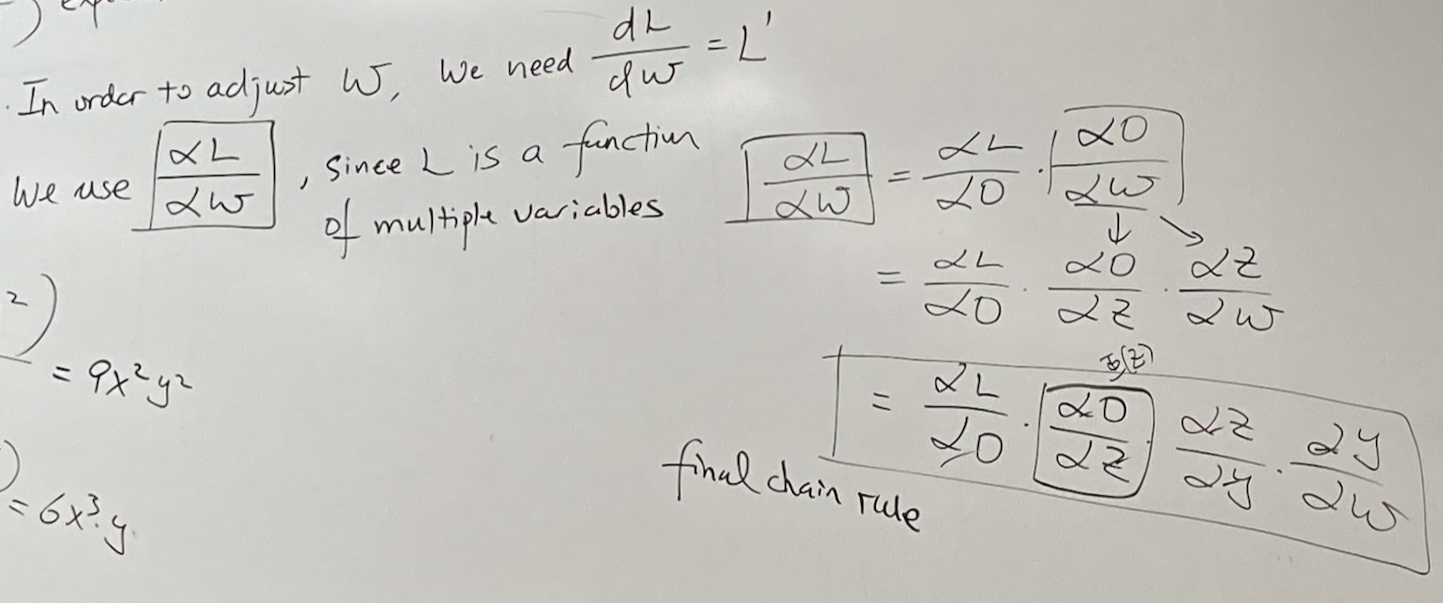 ) exp
. In order to adjust W, We need dL/dW = L'
We use ∂L/∂W, since L is a function
of multiple variables
∂L/∂W = ∂L/∂O · ∂O/∂W
= ∂L/∂O · ∂O/∂Z · ∂Z/∂W
(z)
= ∂L/∂O · ∂O/∂Z · ∂Z/∂y · ∂y/∂W
final chain rule
2)
= 9x²y²
)
= 6x³·y